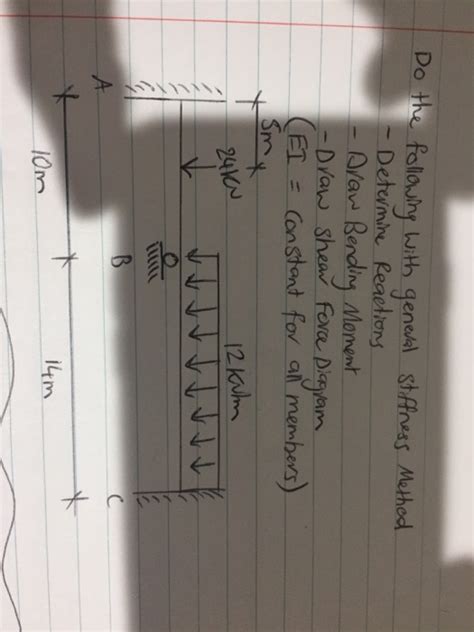 Do the following with general stiffness Method
- Determine Reactions
- Draw Bending Moment
- Draw Shear Force Diagram
(EI = Constant for all members)
5m
24KN
12KN/m
A
B
C
10m
14m